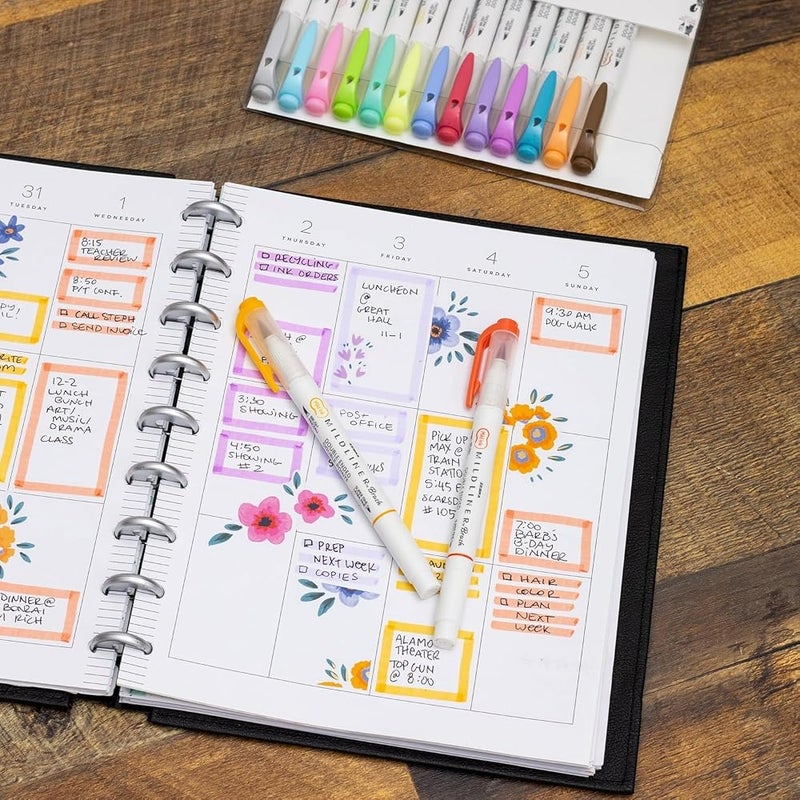 31
TUESDAY
1
WEDNESDAY
8:15
TEACHER
REVIEW
8:50
P/T CONF.
CALL STEPH
SEND INVOICE
12-2
LUNCH
BUNCH
ART/
MUSIC/
DRAMA
CLASS
DINNER @
BONRAI
RICH
2
THURSDAY
RECYCLING
INK ORDERS
@
3:30
SHOWING
4:50
SHOWING
#2
3
FRIDAY
LUNCHEON
@
GREAT
HALL
11-1
POST
OFFICE
PREP
NEXT WEEK
COPIES
4
SATURDAY
PICK UP
MAY @
TRAIN
5:45
#105
ALAMO
THEATER
TOP GUN
@ 8:00
5
SUNDAY
9:30 AM
DOG WALK
7:00
BARB'S
B-DAY
DINNER
HAIR
COLOR
PLAN
NEXT
WEEK
MILDLINER. Brush
DOUBLE ENDED
MILDLINER. Brush
ZEBRA